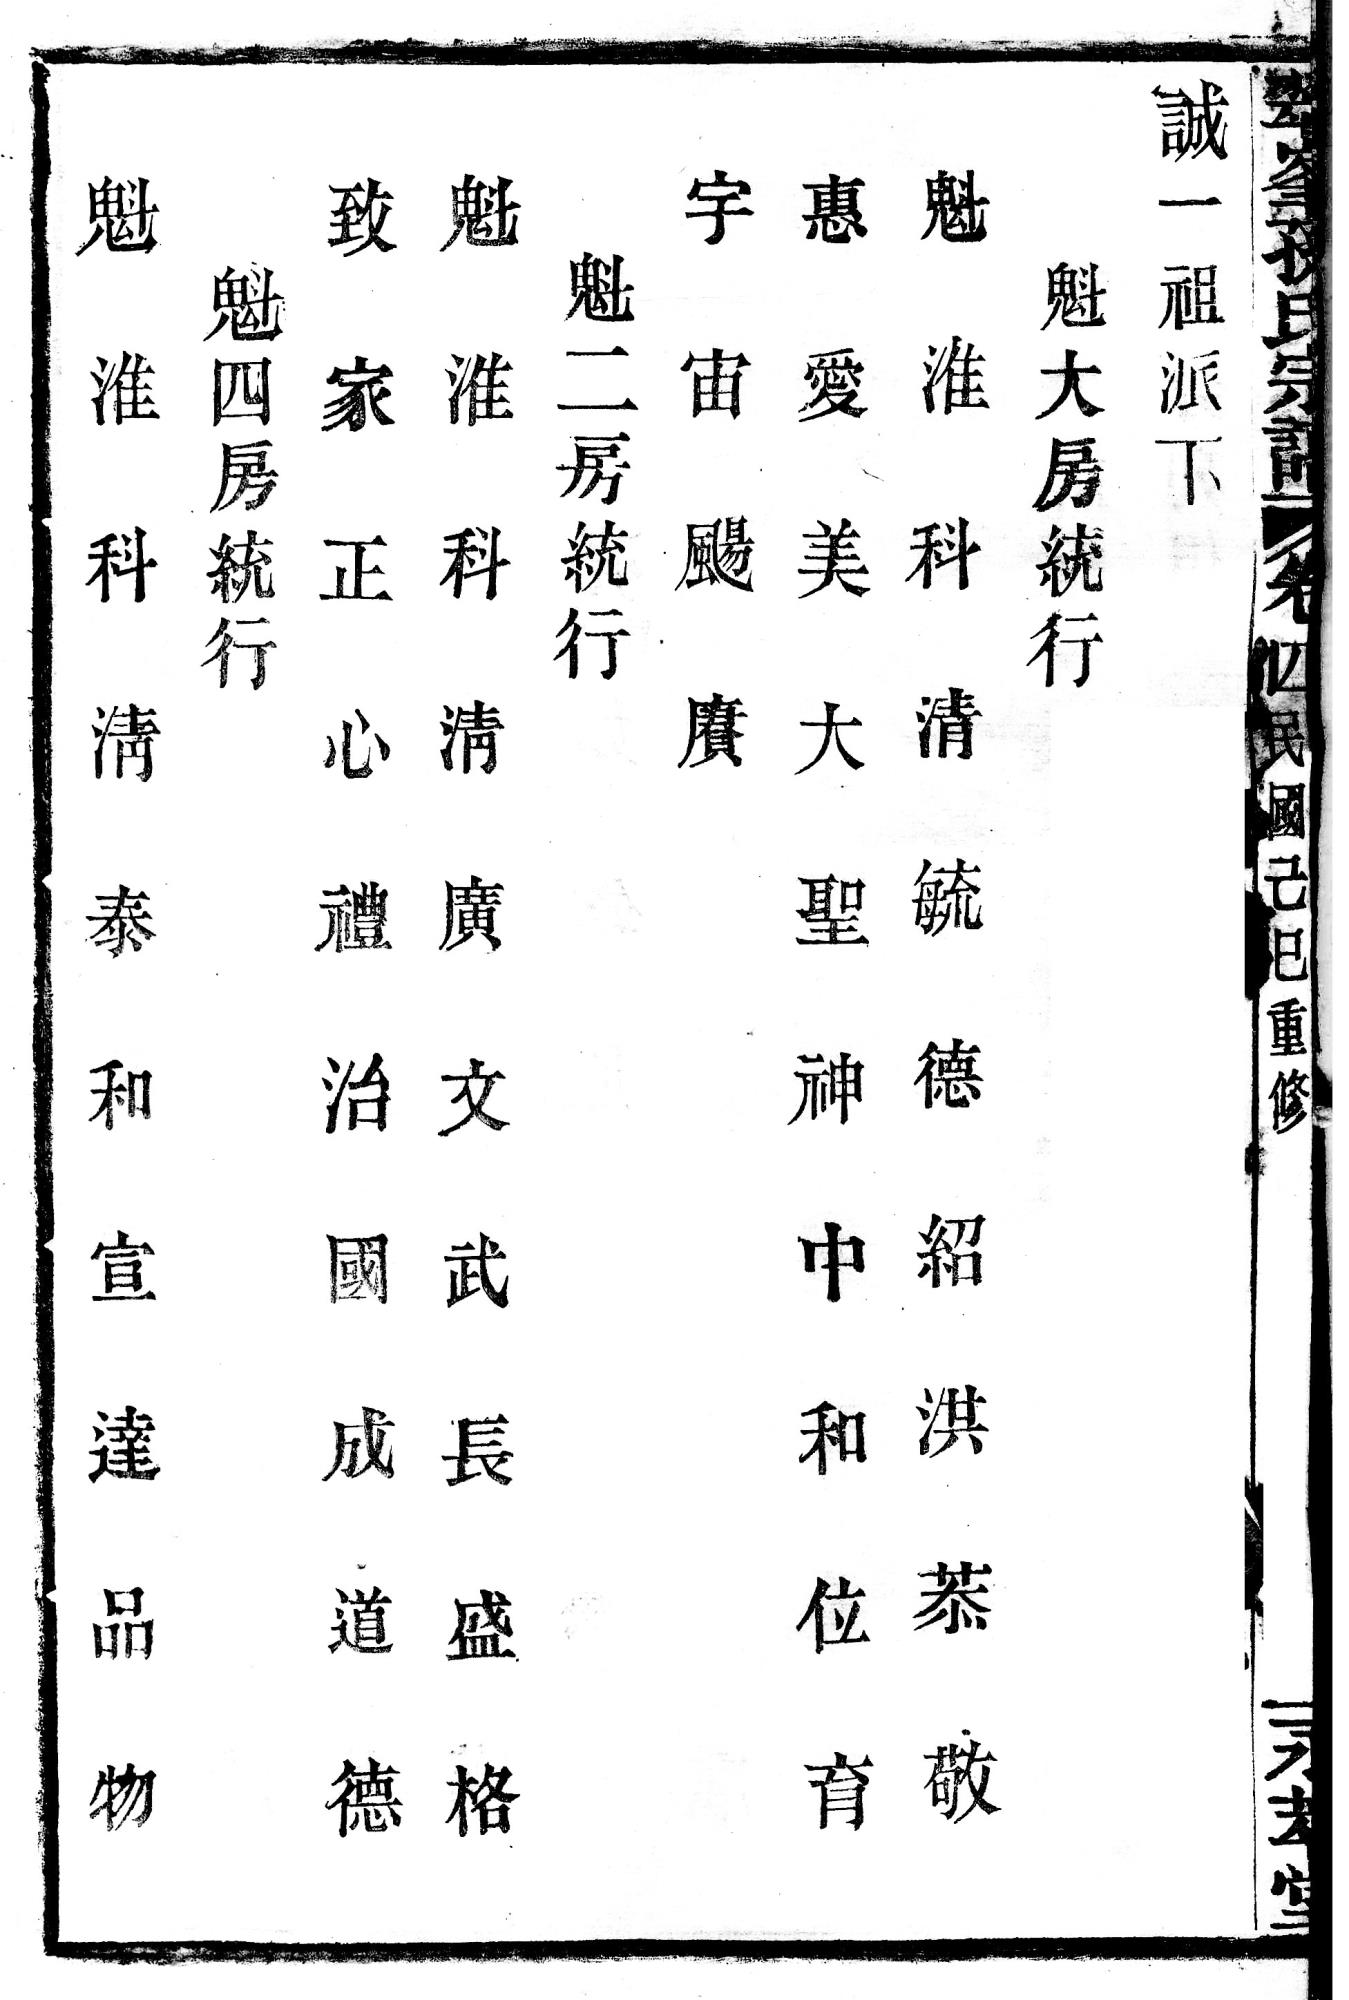 氏宗譜 卷四 民國己巳重修
誠一祖派下
魁大房統行
魁淮科清毓德紹洪恭敬
惠愛美大聖神中和位育
宇宙颺賡
魁二房統行
魁淮科清廣文武長盛格
致家正心禮治國成道德
魁四房統行
魁淮科清泰和宣達品物